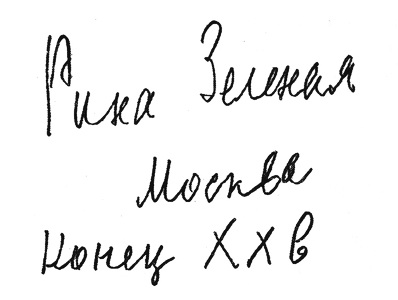 Рина Зеленая
Москва
конец XX в